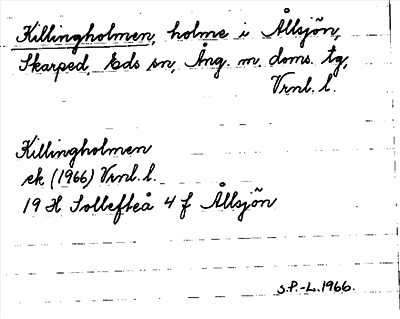 Killingholmen, holme i Ållsjön,
Skarped, Eds sn, Ång. m. doms. tg,
Vrnl. l.
Killingholmen
ek (1966) Vrnl. l.
19 H Sollefteå 4 f Ållsjön
S.P.-L. 1966.